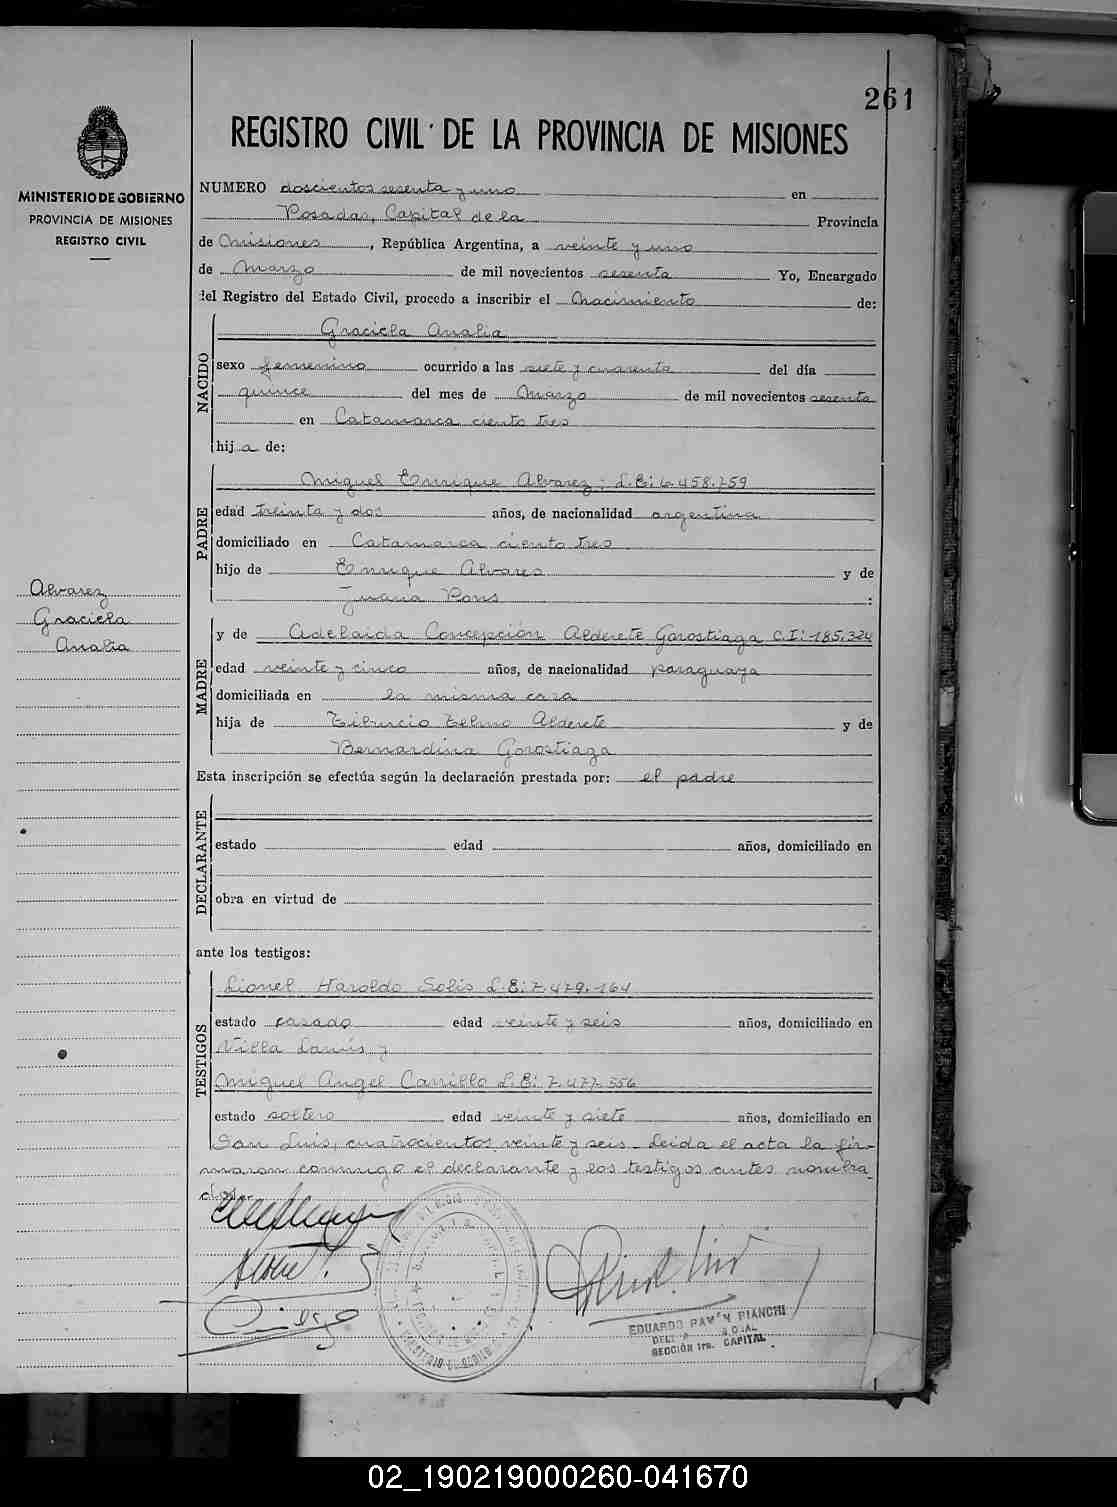 261
REGISTRO CIVIL DE LA PROVINCIA DE MISIONES
MINISTERIO DE GOBIERNO
PROVINCIA DE MISIONES
REGISTRO CIVIL
NUMERO doscientos sesenta y uno en
Posadas, Capital de la Provincia
de Misiones, República Argentina, a veinte y uno
de Marzo de mil novecientos sesenta Yo, Encargado
del Registro del Estado Civil, procedo a inscribir el Nacimiento de:
NACIDO
Graciela Analia
sexo femenino ocurrido a las siete y cuarenta del día
quince del mes de Marzo de mil novecientos sesenta
en Catamarca ciento tres
hij a de:
PADRE
Miguel Enrique Alvarez: L.E: 6.458.759
edad treinta y dos años, de nacionalidad argentina
domiciliado en Catamarca ciento tres
hijo de Enrique Alvares y de
Juana Pons :
Alvarez
Graciela
Analia
MADRE
y de Adelaida Concepción Alderete Gorostiaga C.I: 185.324
edad veinte y cinco años, de nacionalidad paraguaya
domiciliada en la misma casa
hija de Tiburcio Telmo Alderete y de
Bernardina Gorostiaga
Esta inscripción se efectúa según la declaración prestada por: el padre
DECLARANTE
estado edad años, domiciliado en
obra en virtud de
ante los testigos:
TESTIGOS
Lionel Haroldo Solis L.E: 7.479.164
estado casado edad veinte y seis años, domiciliado en
Villa Lanús y
Miguel Angel Carrillo L.E: 7.477.356
estado soltero edad veinte y siete años, domiciliado en
San Luis, cuatrocientos veinte y seis- Leida el acta la fir-
maron conmigo el declarante y los testigos antes nombra
dos.-
EDUARDO RAMÓN BIANCHI
SECCIÓN 1ra. CAPITAL
02_190219000260-041670